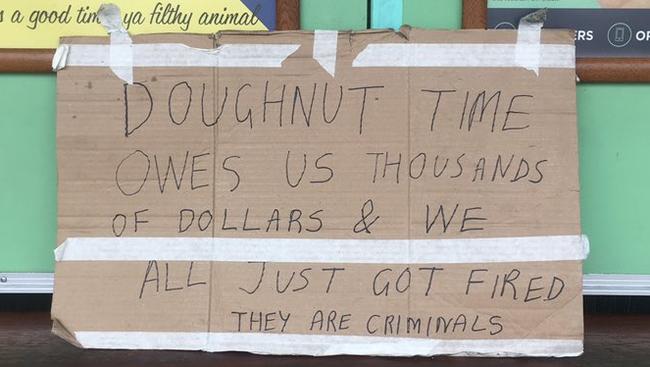 s a good time, ya filthy animal
ERS
DOUGHNUT TIME
OWES US THOUSANDS
OF DOLLARS & WE
ALL JUST GOT FIRED
THEY ARE CRIMINALS